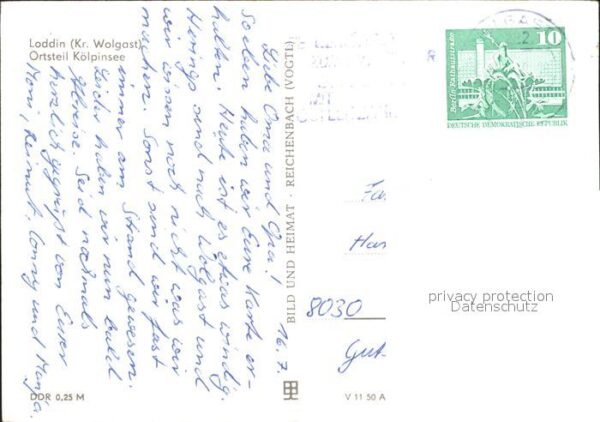 Loddin (Kr. Wolgast)
Ortsteil Kölpinsee
16. 7.
Liebe Oma und Opa!
Soeben haben wir Eure Karte er-
halten. Heute ist es etwas windig.
Herings sind nach Wolgast und
wir wissen noch nicht was wir
machen. Sonst sind wir fast
immer am Strand gewesen.
Leider haben wir nun bald
Abreise. Seid nochmals
herzlich gegrüßt von Eurer
Moni, Helmut, Conny und Manja.
DDR 0,25 M
BILD UND HEIMAT · REICHENBACH (VOGTL)
V 11 50 A
10
Berlin, Rathausstraße
DEUTSCHE DEMOKRATISCHE REPUBLIK
Fa
Han
8030
Gut
privacy protection
Datenschutz